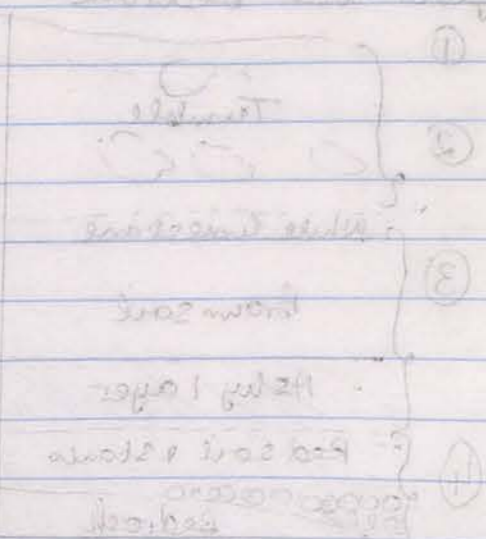 ①
Tumble
②
White limestone
③
brown soil
Ashy layer
Red soil & stones
④
Bedrock